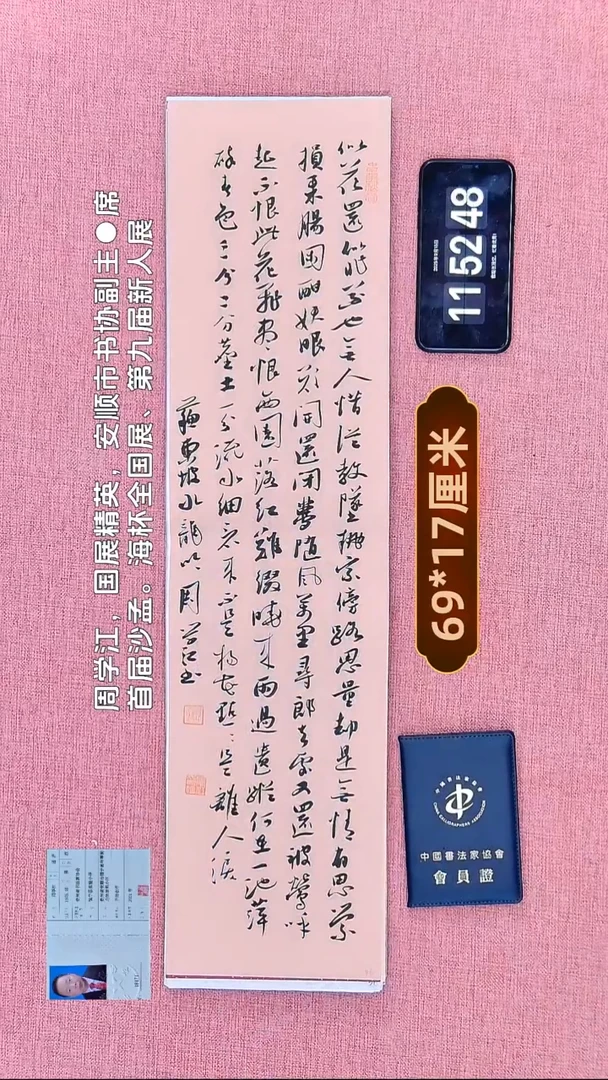 似花還似非花也無人惜從教墜拋家傍路思量却是無情有思縈
損柔腸困酣嬌眼欲開還閉夢隨風萬里尋郎去處又還被鶯呼
起不恨此花飛盡恨西園落紅難綴曉來雨過遺蹤何在一池萍
碎春色三分二分塵土一分流水細看來不是楊花點點是離人淚
蘇東坡水龍吟周學江書
11 52 48
69*17厘米
中國書法家協會
CHINA CALLIGRAPHERS ASSOCIATION
中國書法家協會
會員證
周学江，国展精英，安顺市书协副主●席
首届沙孟。海杯全国展、第九届新人展